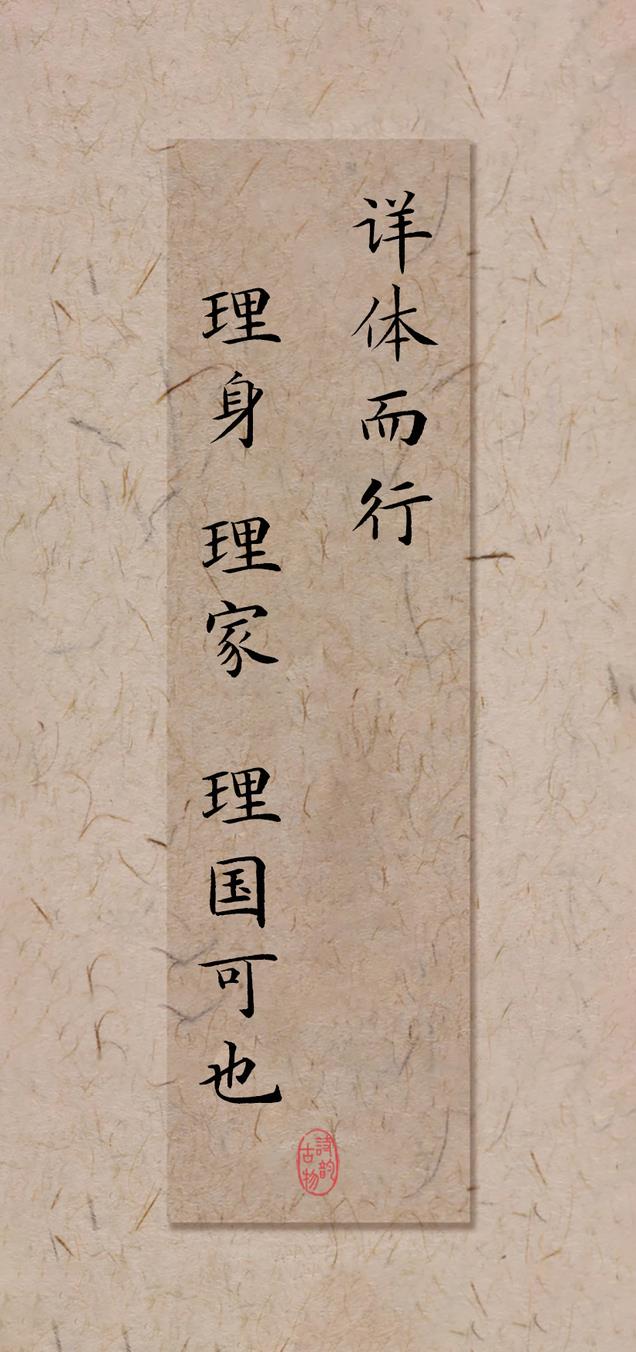 详体而行
理身 理家 理国可也
詩韵
古物